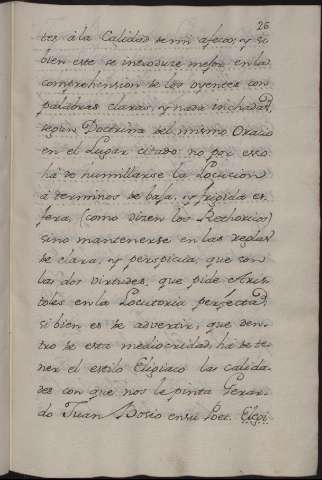 26
tes á la Calidad de mi afecto; y si
bien este se introduce mejor en la
comprehension de los oyentes con
palabras claras, y nada inchadas,
segun Doctrina del mismo Oracio
en el Lugar citado no por esso
há de humillarse la Locucion
á terminos de baja, y frigida es
fera, (como dizen los Rethoricos)
sino mantenerse en las reglas
de clara, y perspicua, que son
las dos virtudes, que pide Aris
toteles en la Locutoria perfecta;
si bien es de advertir, que den
tro de esta mediocridad, há de te
ner el estilo Elegiaco las calida
des con que nos le pinta Gerar
do Juan Vosio en su Poet. Elegi